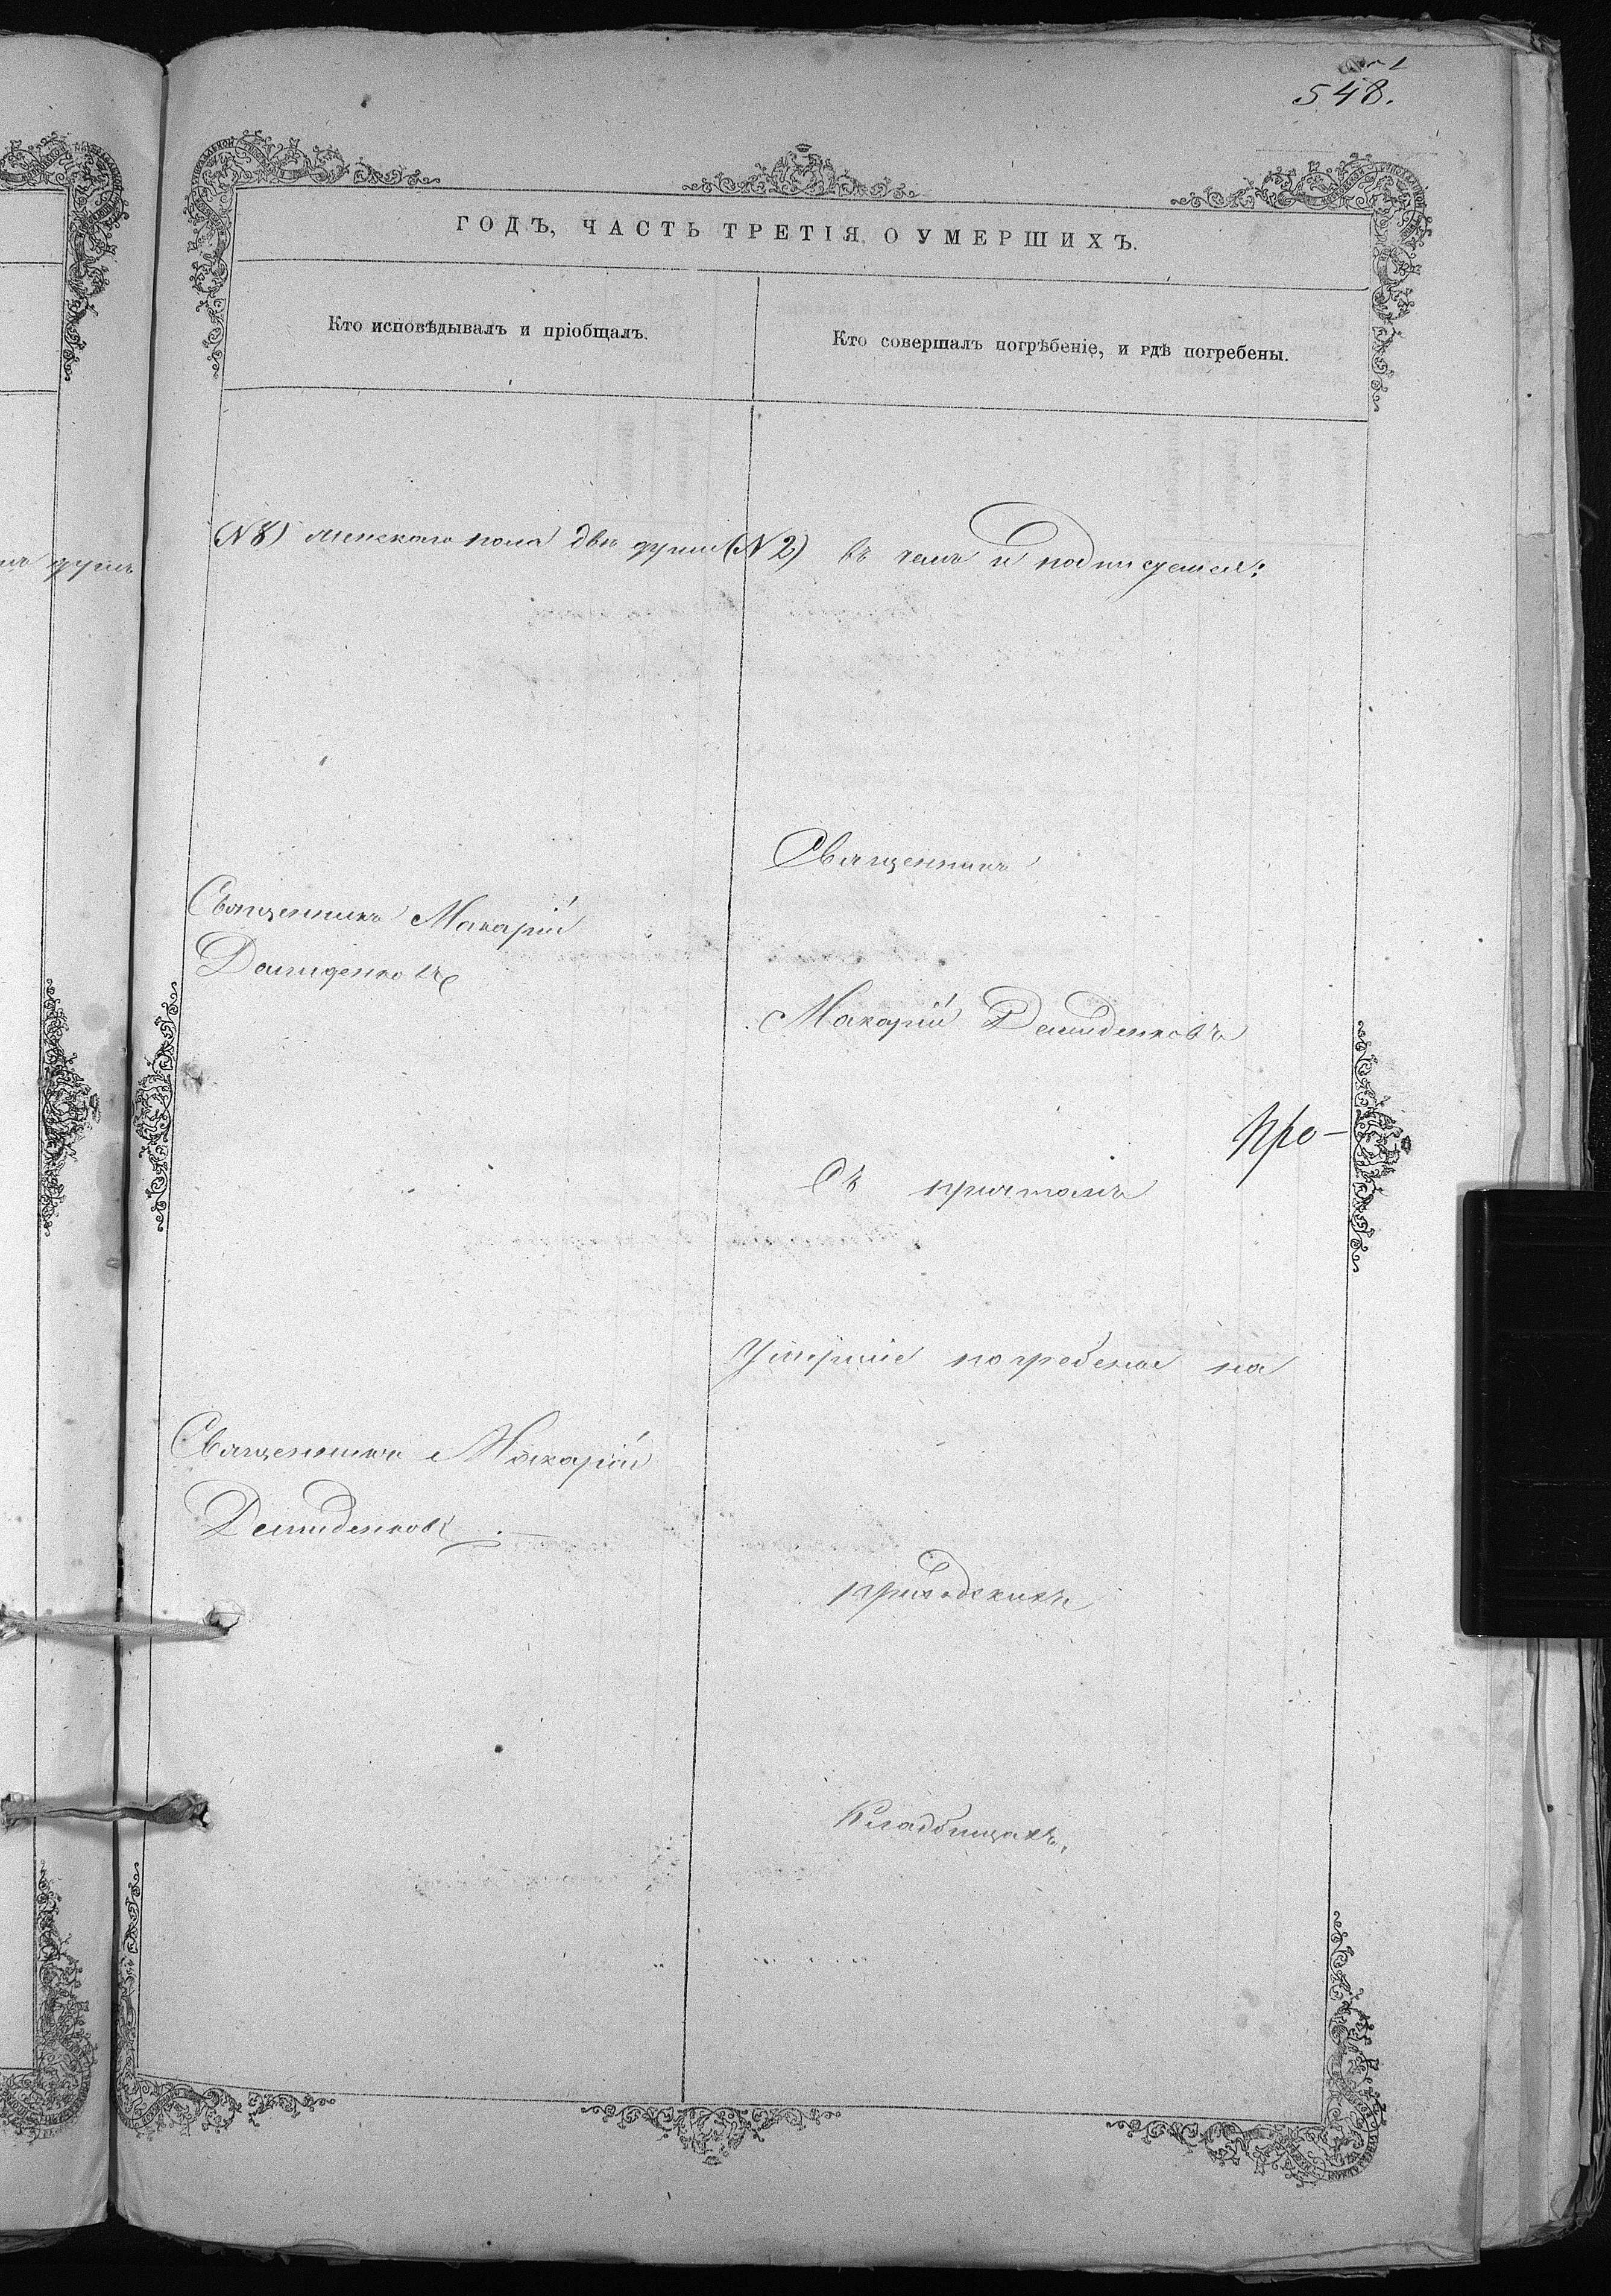 548.
ГОДЪ, ЧАСТЬ ТРЕТІЯ, О УМЕРШИХЪ.
Кто исповѣдывалъ и пріобщалъ.
Кто совершалъ погрѣбеніе, и гдѣ погребены.
(N 8) женскаго пола двѣ души (N 2) въ чемъ и подписуемся:
Священникъ Макарій
Демиденковъ
Священникъ
Макарій Демиденковъ
Про-
съ причтомъ
Умершіе погребены на
Священникъ Макарій
Демиденковъ
приходскихъ
Кладбищахъ.